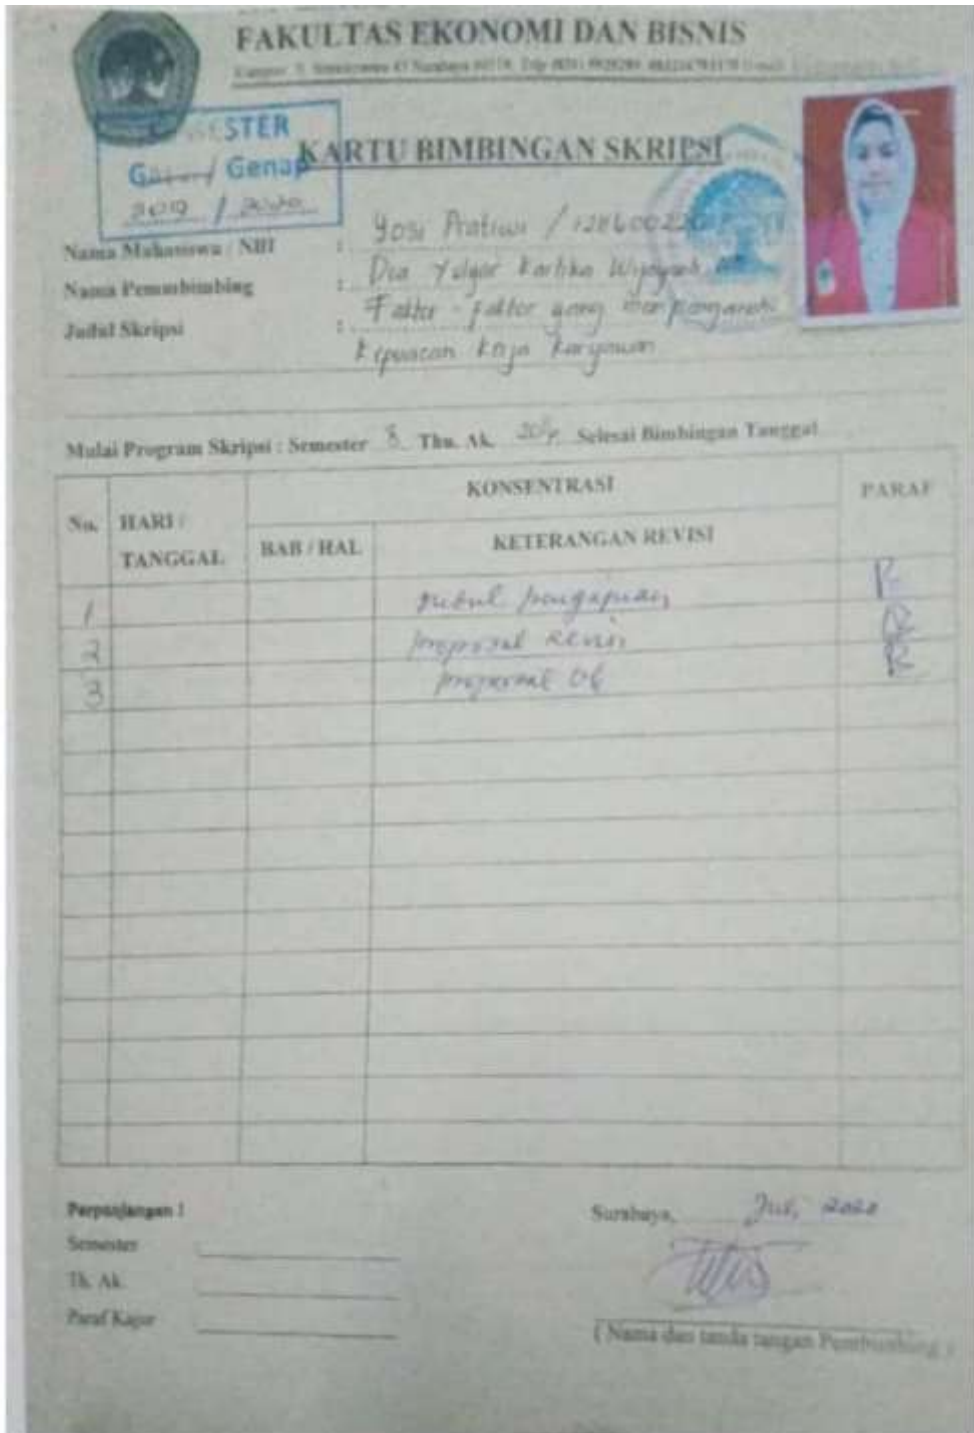 FAKULTAS EKONOMI DAN BISNIS
SEMESTER
Gasal / Genap
2019 / 2020
KARTU BIMBINGAN SKRIPSI
Nama Mahasiswa / NBI : Yosi Pratiwi /
Nama Pemmbimbing : Dra Yulyar Kartika Wijayanti
Judul Skripsi : Faktor - faktor yang mempengaruhi
Kepuasan Kerja Karyawan
Mulai Program Skripsi : Semester 8 Thn. Ak. Selesai Bimbingan Tanggal
No. HARI / TANGGAL KONSENTRASI PARAF
BAB / HAL KETERANGAN REVISI
1 Judul pengajuan
2 proposal Revisi
3 proposal Ok
Perpanjangan I
Semester
Th. Ak.
Paraf Kajur
Surabaya, Juli 2020
( Nama dan tanda tangan Pembimbing )